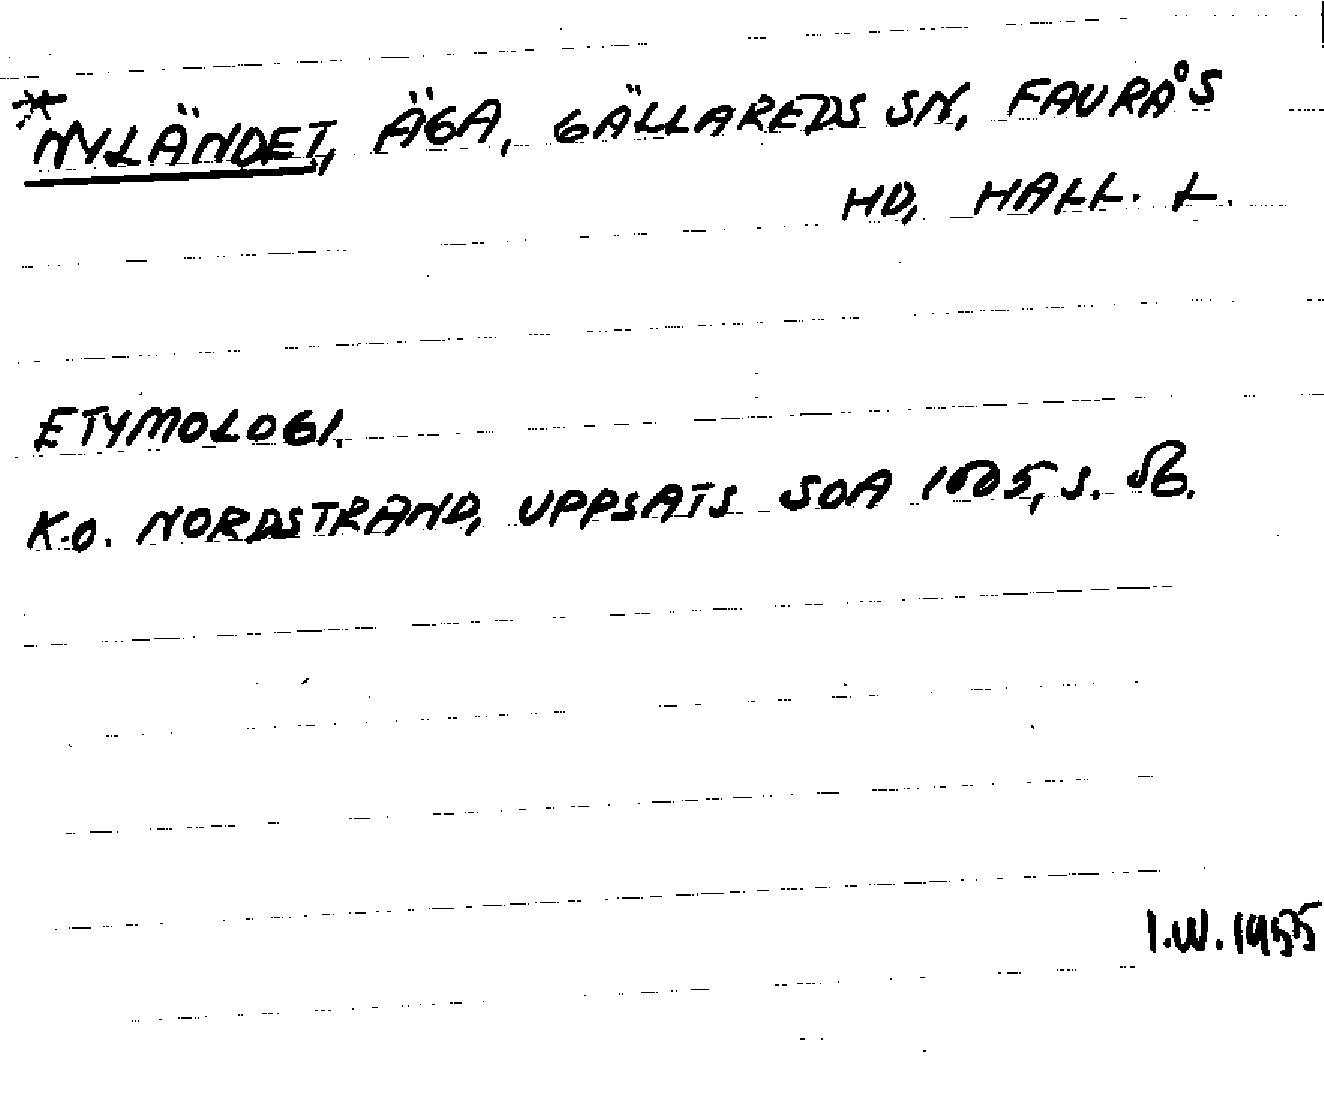 *NYLÄNDET, ÄGA, GÄLLAREDS SN, FAURÅS
HD, HALL. L.
ETYMOLOGI.
K.O. NORDSTRAND, UPPSATS SOA 1005, S.
I.W. 1955